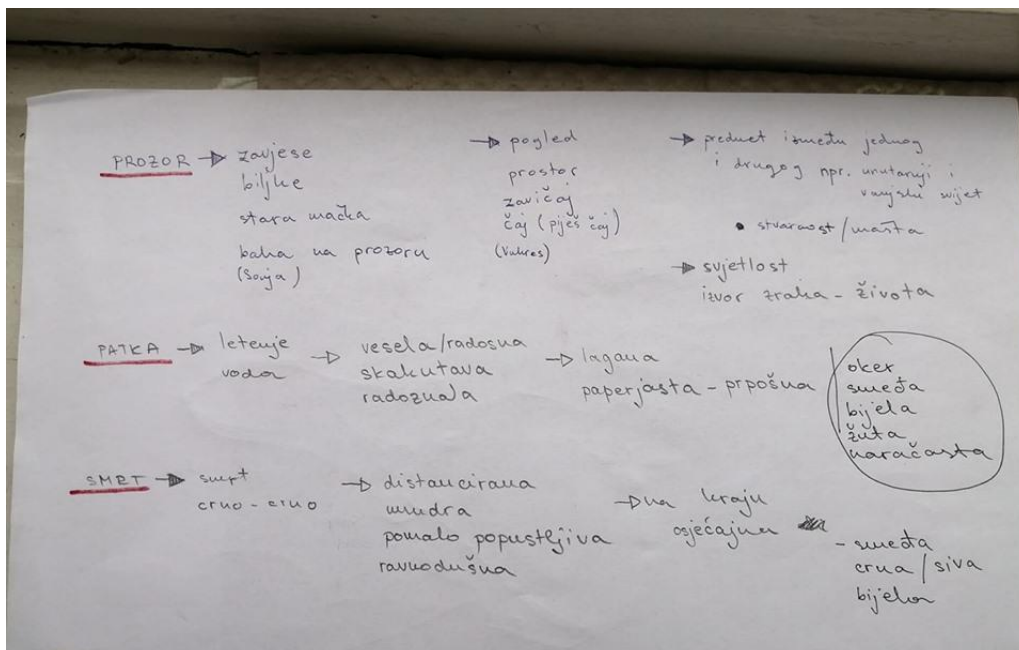 PROZOR → zavjese
biljke
stara mačka
baka na prozoru
(Sonja)
→ pogled
prostor
zavičaj
čaj (piješ čaj)
→ predmet između jednog
i drugog npr. unutarnji i
vanjski svijet
• stvarnost/mašta
→ svjetlost
izvor zraka - života
PATKA → letenje
voda
→ vesela/radosna
skakutava
radoznala
→ lagana
paperjasta - prpošna
oker
smeđa
bijela
žuta
naračasta
SMRT → smrt
crno - crno
→ distancirana
mudra
pomalo popustljiva
ravnodušna
→ na kraju
osjećajna
- smeđa
crna / siva
bijela